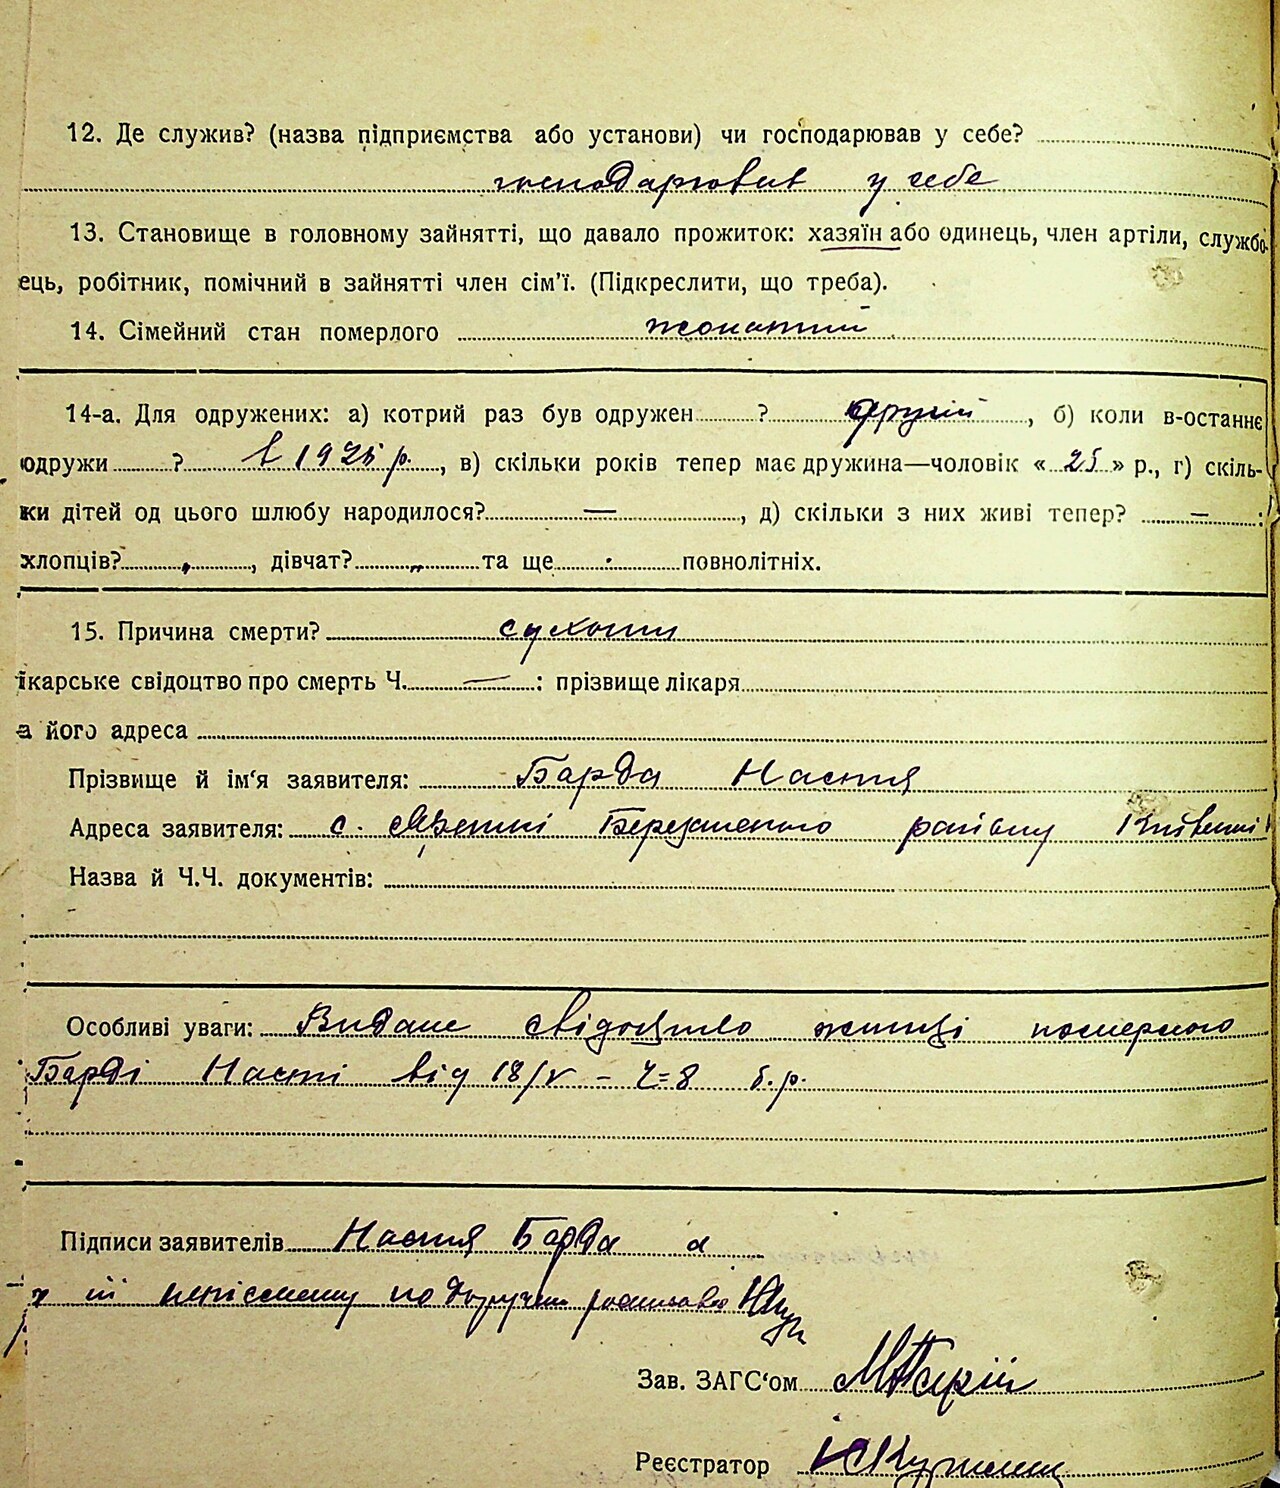 12. Де служив? (назва підприємства або установи) чи господарював у себе?
господарював у себе
13. Становище в головному зайнятті, що давало прожиток: хазяїн або одинець, член артілі, службо-
ець, робітник, помічний в зайнятті член сім'ї. (Підкреслити, що треба).
14. Сімейний стан померлого жонатий
14-а. Для одружених: а) котрий раз був одружен ? другий, б) коли в-останнє
одружи ? в 1925 р., в) скільки років тепер має дружина—чоловік « 25 » р., г) скіль-
ки дітей од цього шлюбу народилося? —, д) скільки з них живі тепер? — :
хлопців? „, дівчат? „ та ще повнолітніх.
15. Причина смерти? сухоти
ікарське свідоцтво про смерть Ч. — : прізвище лікаря
а його адреса
Прізвище й ім'я заявителя: Барда Настя
Адреса заявителя: с. Березанського району Київщині
Назва й Ч.Ч. документів:
Особливі уваги: Видане свідоцтво жінці померлого
Барді Насті від 18/V – Ч=8 б.р.
Підписи заявителів Настя Барда а
її неписьменну по
Зав. ЗАГС'ом
Реєстратор